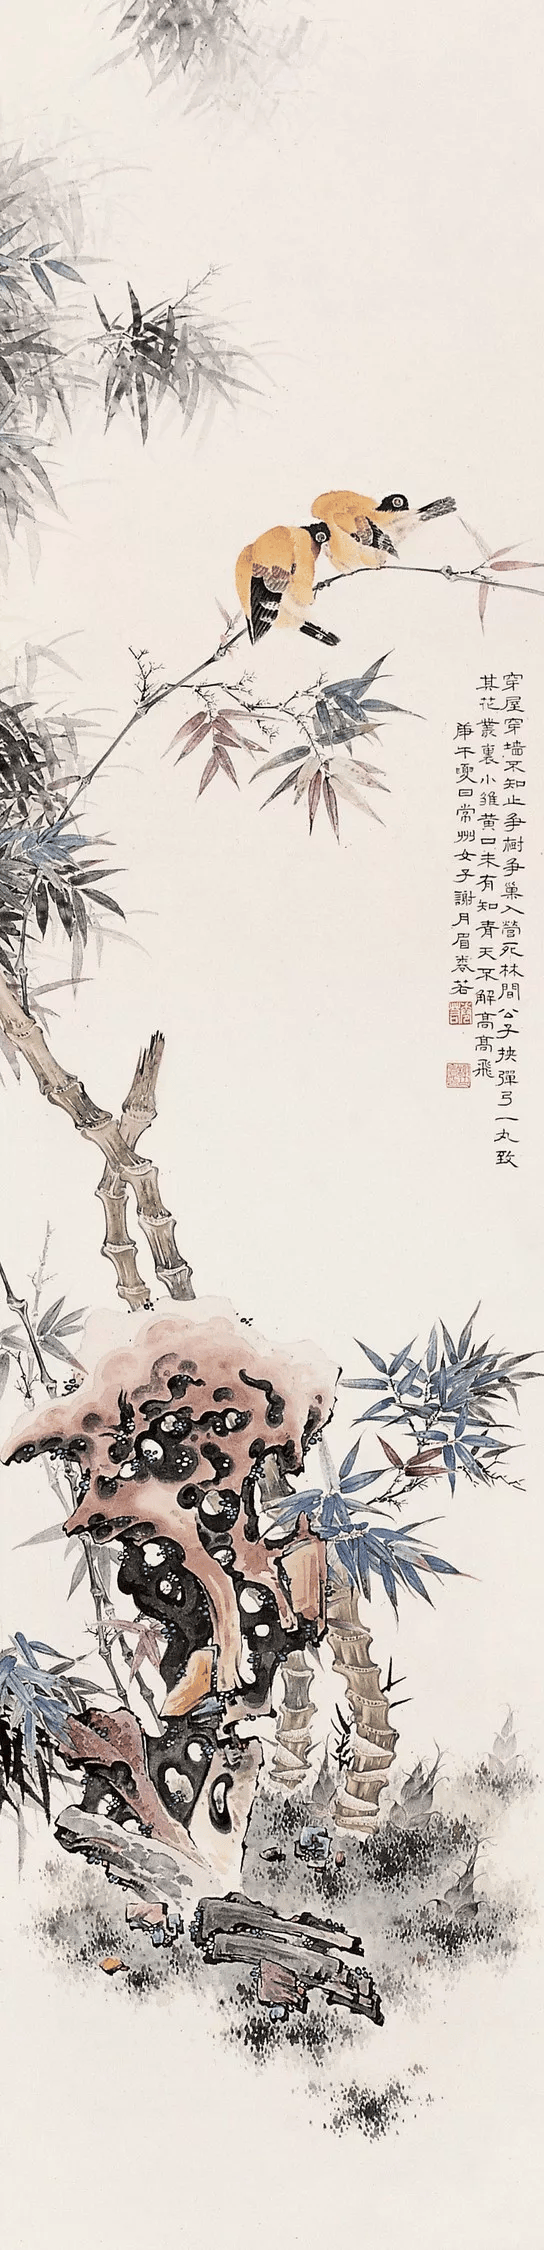 穿屋穿墙不知止争树争巢入营死林間公子挟彈弓一丸致
其花叢裏小雏黄口未有知青天不解高高飛
庚午夏日常州女子謝月眉卷若